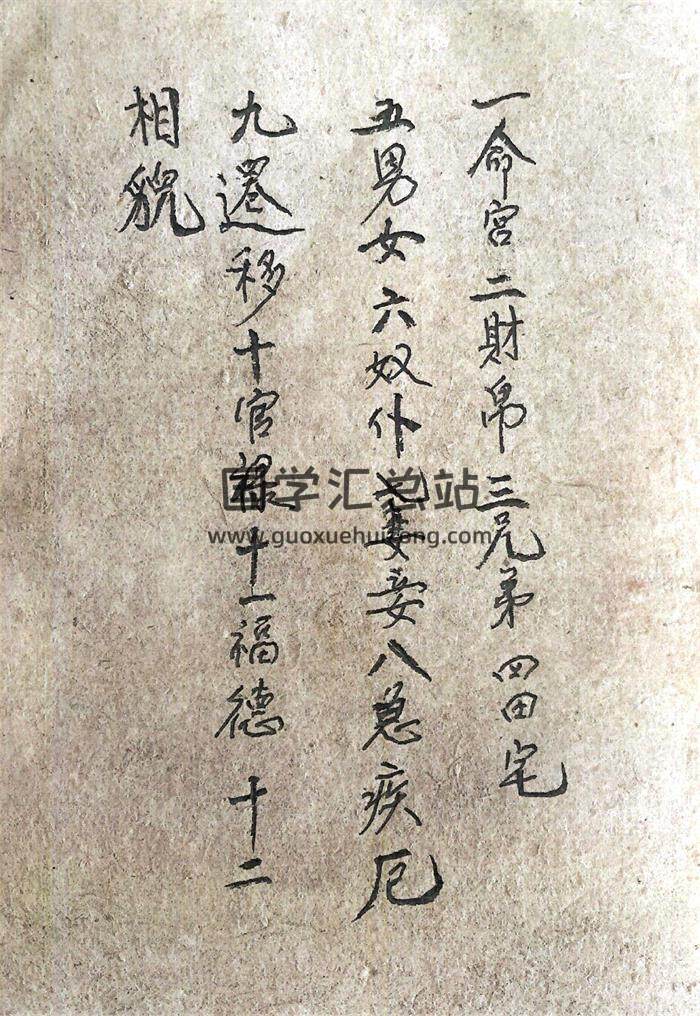 一命宮二財帛三兄弟四田宅
五男女六奴仆七妻妾八急疾厄
九遷移十官祿十一福德 十二
相貌
国学汇总站
www.guoxuehuizong.com